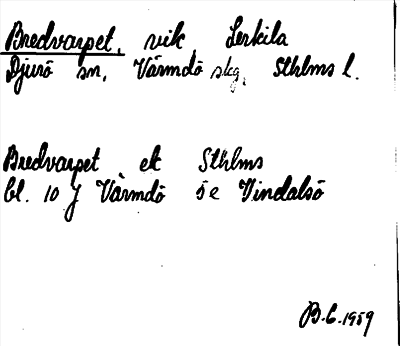 Bredvarpet, vik, Lerkila
Djurö sn, Värmdö skg, Sthlms l.
Bredvarpet ek Sthlms
bl. 10 J Värmdö se Vindalsö
B.C. 1959